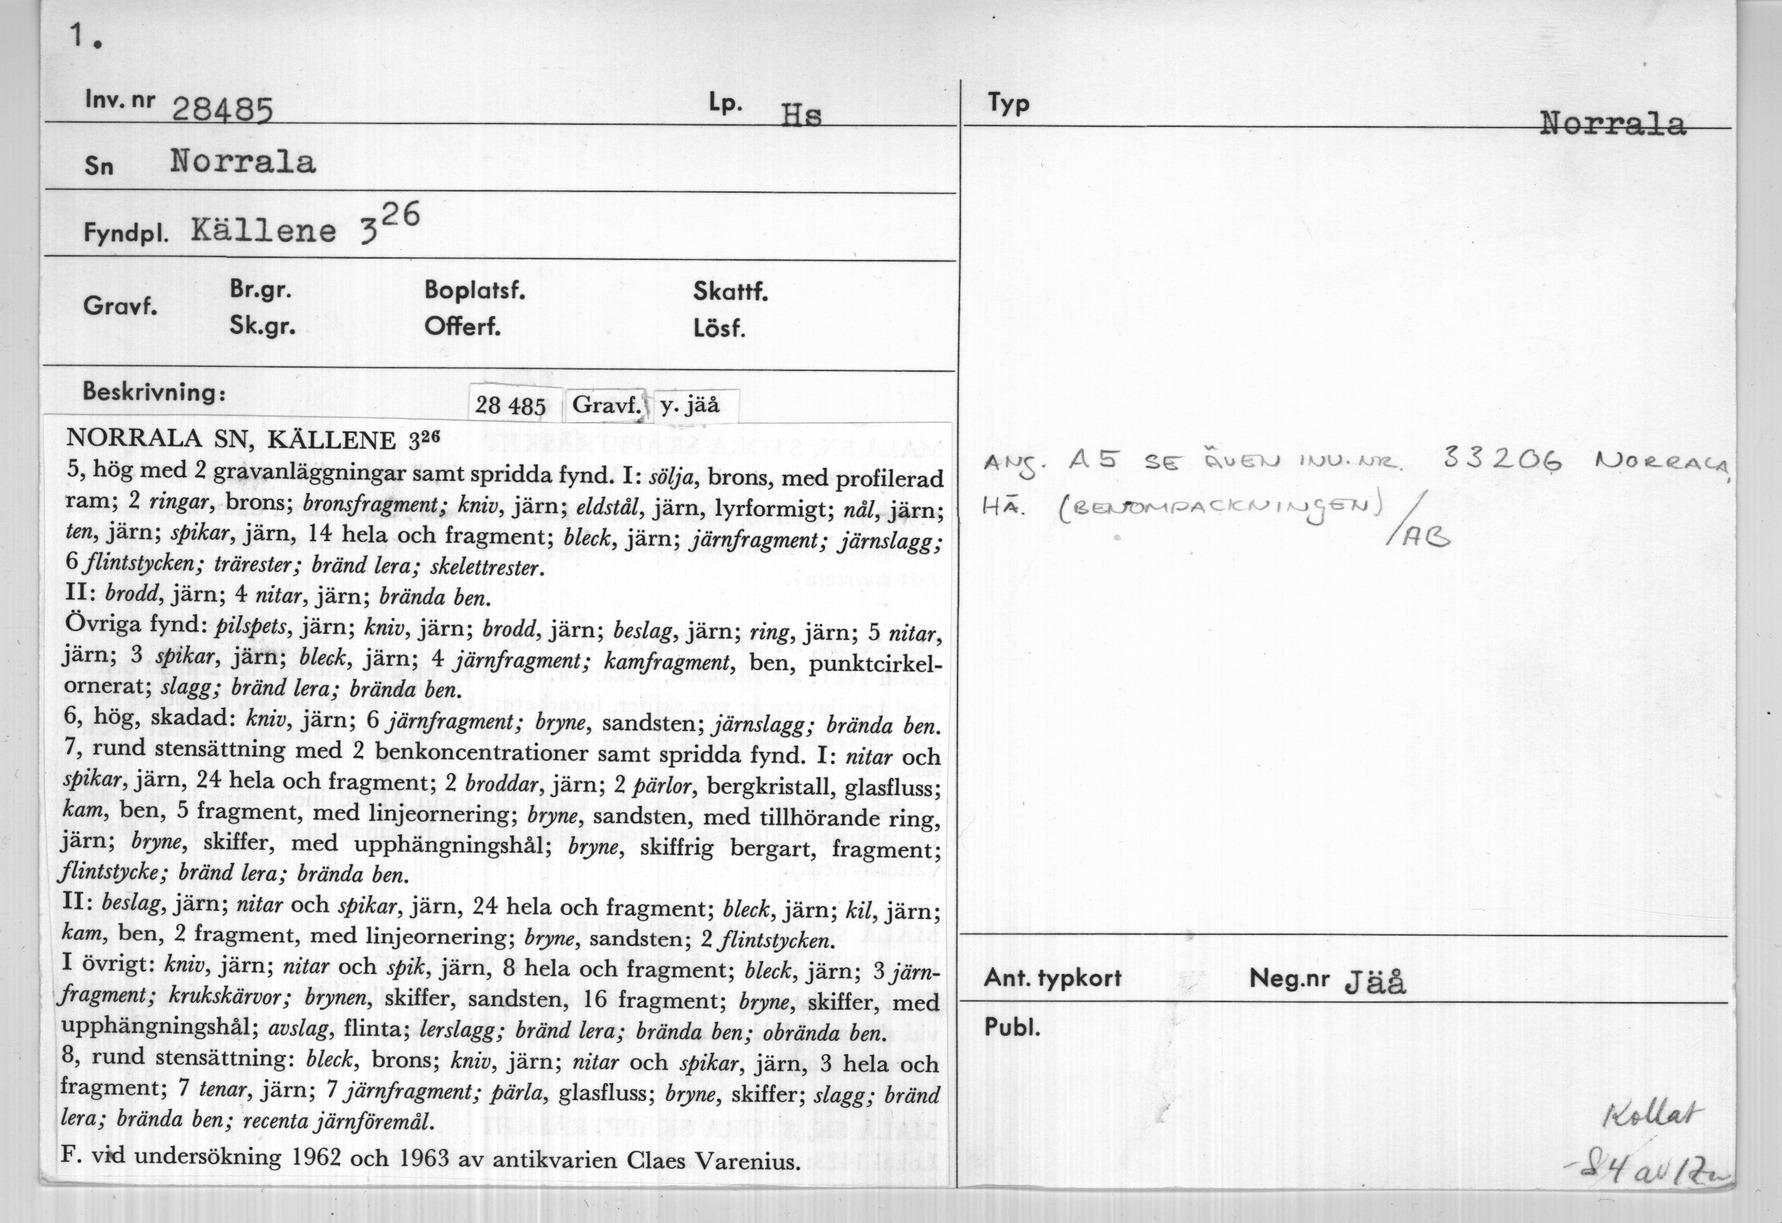 1.
Inv. nr 28485 Lp. Hs
Sn Norrala
Fyndpl. Källene 3²⁶
Gravf. Br.gr. Boplatsf. Skattf.
Sk.gr. Offerf. Lösf.
Beskrivning: 28 485 Gravf. y. jäå
NORRALA SN, KÄLLENE 3²⁶
5, hög med 2 gravanläggningar samt spridda fynd. I: sölja, brons, med profilerad
ram; 2 ringar, brons; bronsfragment; kniv, järn; eldstål, järn, lyrformigt; nål, järn;
ten, järn; spikar, järn, 14 hela och fragment; bleck, järn; järnfragment; järnslagg;
6 flintstycken; trärester; bränd lera; skelettrester.
II: brodd, järn; 4 nitar, järn; brända ben.
Övriga fynd: pilspets, järn; kniv, järn; brodd, järn; beslag, järn; ring, järn; 5 nitar,
järn; 3 spikar, järn; bleck, järn; 4 järnfragment; kamfragment, ben, punktcirkel-
ornerat; slagg; bränd lera; brända ben.
6, hög, skadad: kniv, järn; 6 järnfragment; bryne, sandsten; järnslagg; brända ben.
7, rund stensättning med 2 benkoncentrationer samt spridda fynd. I: nitar och
spikar, järn, 24 hela och fragment; 2 broddar, järn; 2 pärlor, bergkristall, glasfluss;
kam, ben, 5 fragment, med linjeornering; bryne, sandsten, med tillhörande ring,
järn; bryne, skiffer, med upphängningshål; bryne, skiffrig bergart, fragment;
flintstycke; bränd lera; brända ben.
II: beslag, järn; nitar och spikar, järn, 24 hela och fragment; bleck, järn; kil, järn;
kam, ben, 2 fragment, med linjeornering; bryne, sandsten; 2 flintstycken.
I övrigt: kniv, järn; nitar och spik, järn, 8 hela och fragment; bleck, järn; 3 järn-
fragment; krukskärvor; brynen, skiffer, sandsten, 16 fragment; bryne, skiffer, med
upphängningshål; avslag, flinta; lerslagg; bränd lera; brända ben; obrända ben.
8, rund stensättning: bleck, brons; kniv, järn; nitar och spikar, järn, 3 hela och
fragment; 7 tenar, järn; 7 järnfragment; pärla, glasfluss; bryne, skiffer; slagg; bränd
lera; brända ben; recenta järnföremål.
F. vid undersökning 1962 och 1963 av antikvarien Claes Varenius.
Typ Norrala
ANG. A5 SE ÄVEN INV.NR. 33206 NORRALA,
HÄ. (BENOMPACKNINGEN)
/AB
Ant. typkort Neg.nr Jäå
Publ.
Kollat
-84 av